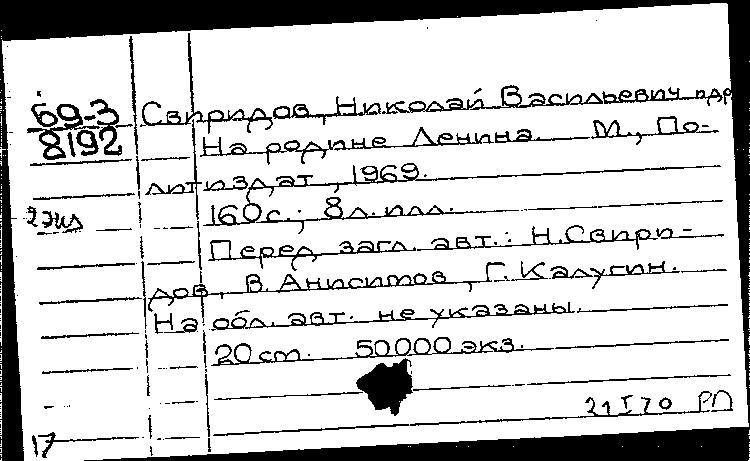 69-3 Свиридов, Николай Васильевич и др.
8192 На родине Ленина. М., По-
литиздат, 1969.
2 экз 160с.; 8л. илл.
Перед загл. авт.: Н.Свири-
дов, В. Анисимов, Г. Калугин.
На обл. авт. не указаны.
20 cm. 50000 экз.
21 I 70 РП
17